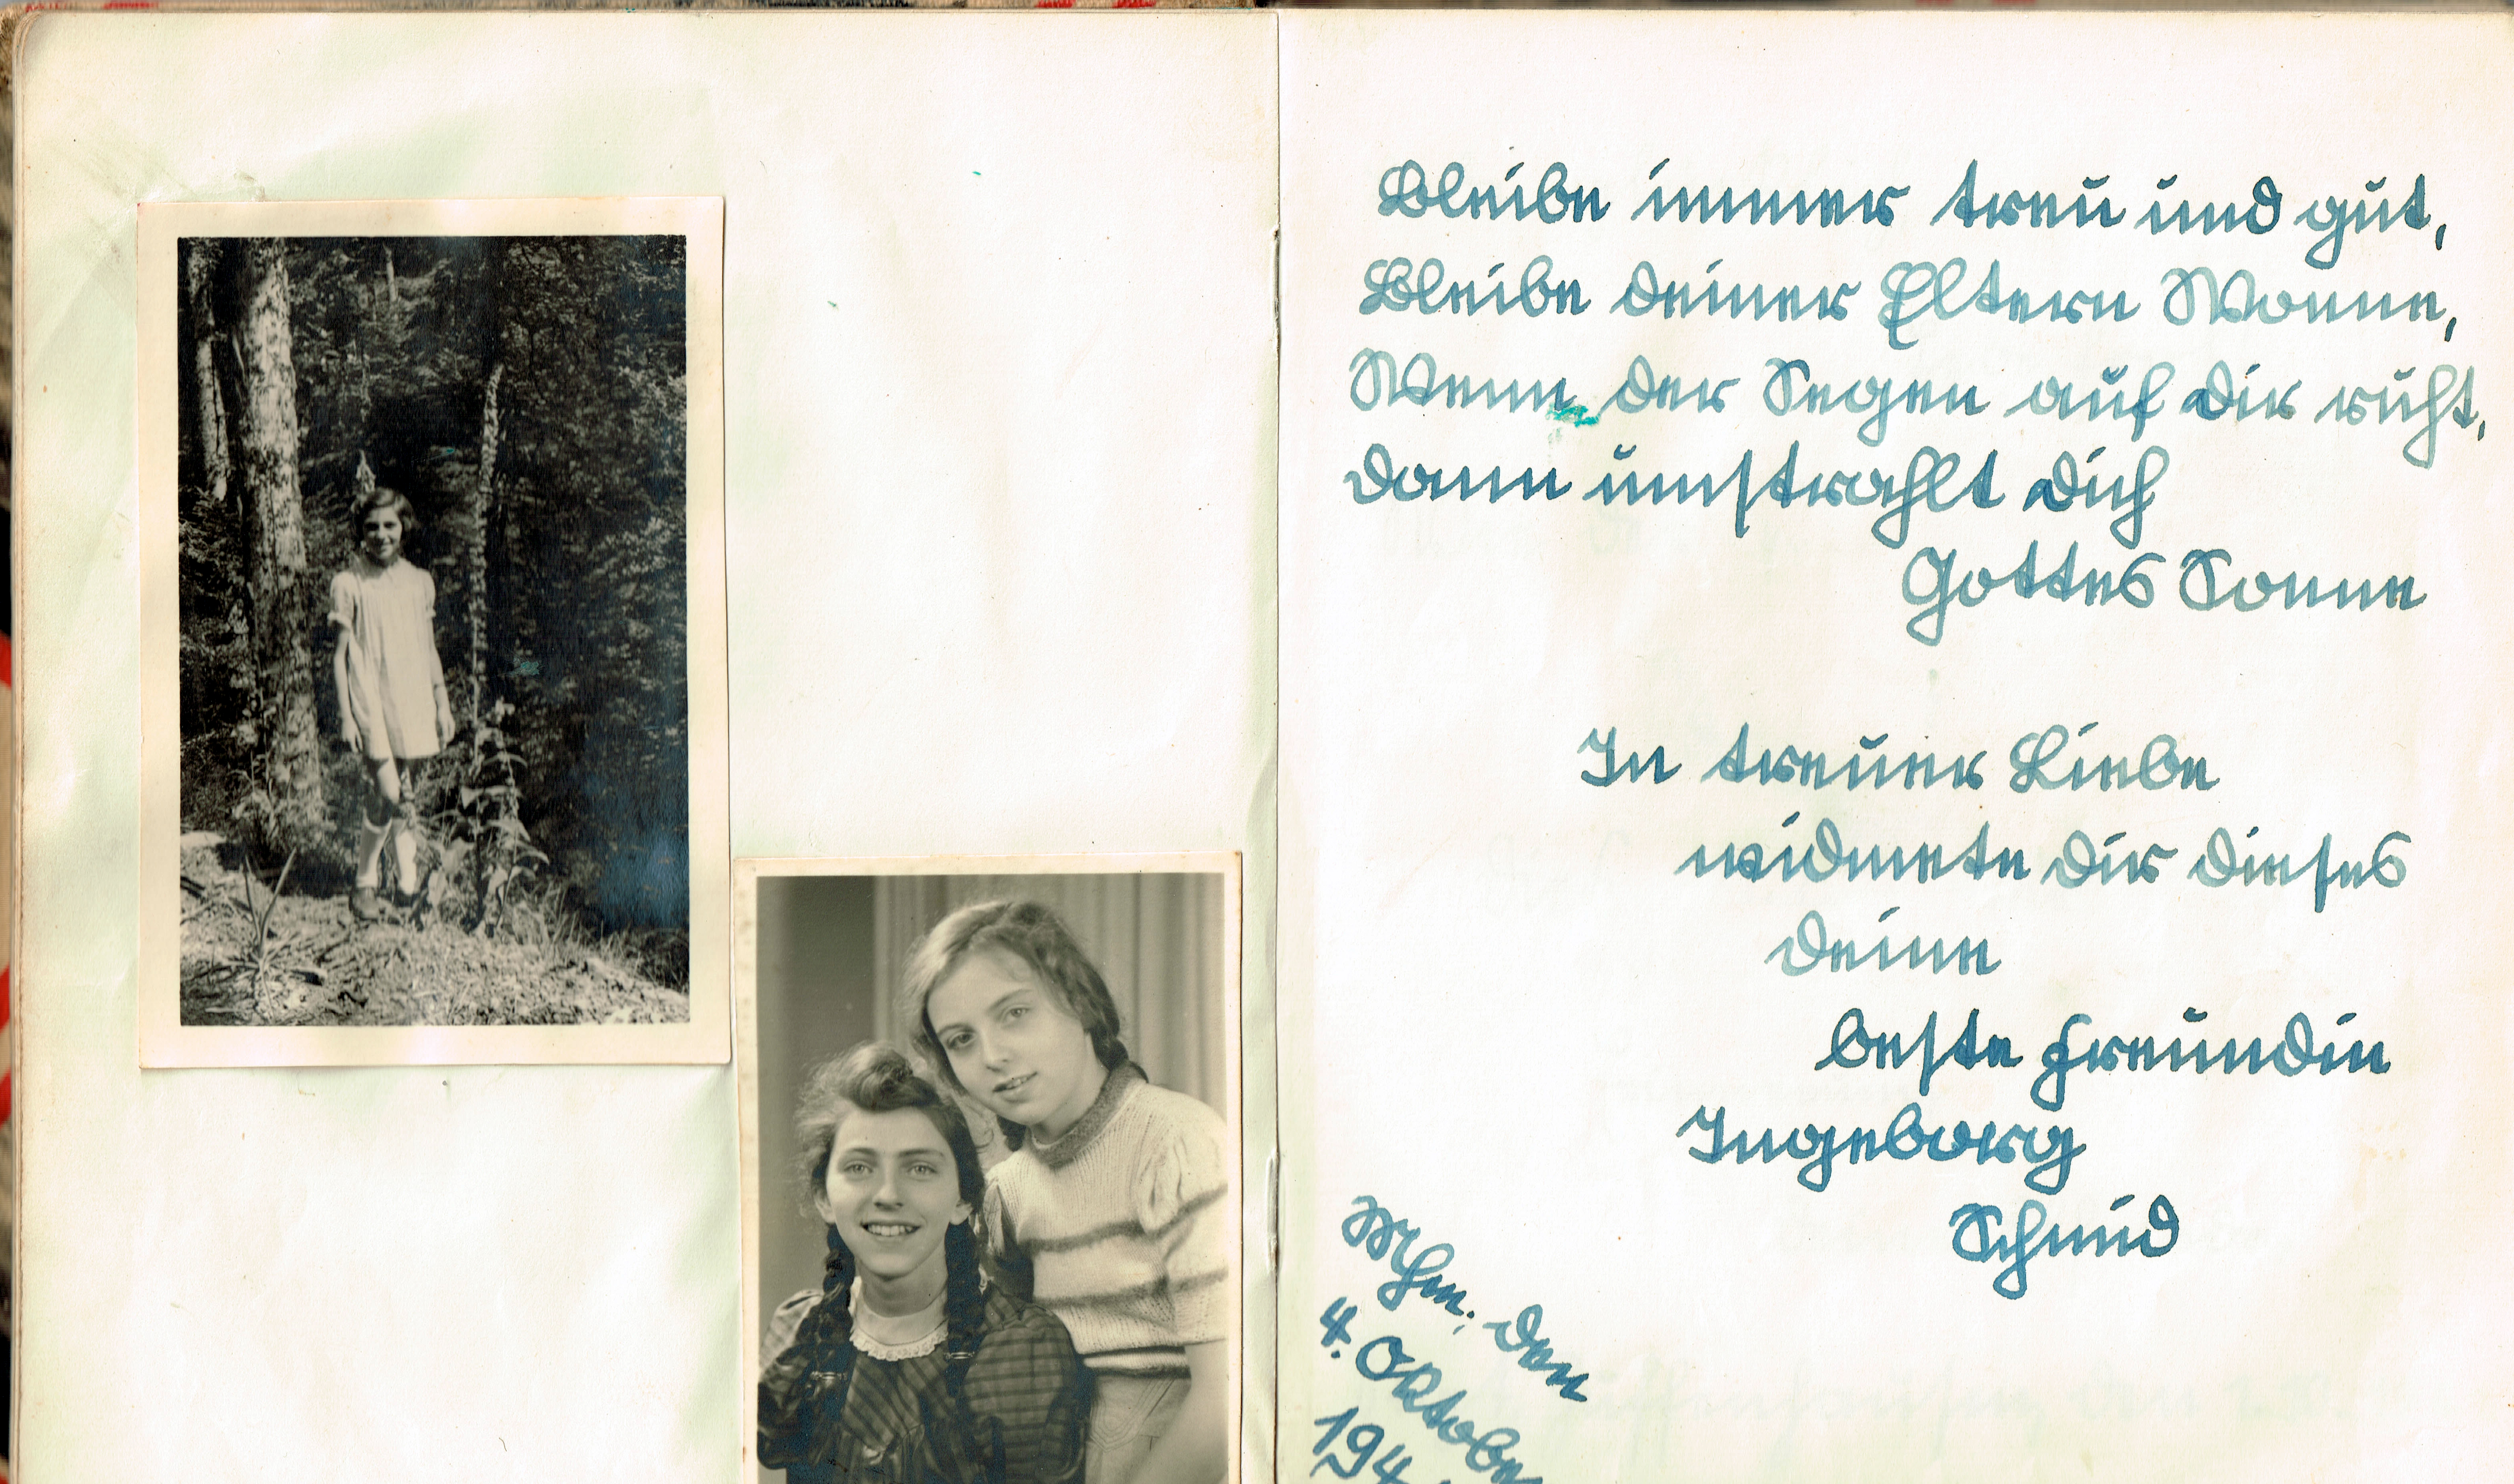 Bleibe immer treu und gut,
Bleibe deiner Eltern Wonne,
Wenn der Segen auf dir ruht,
dann umstrahlt dich
Gottes Sonne
In treuer Liebe
widmete dir dieses
deine
beste Freundin
Ingeborg
Schmid
Mhm. den
4. Oktober
194